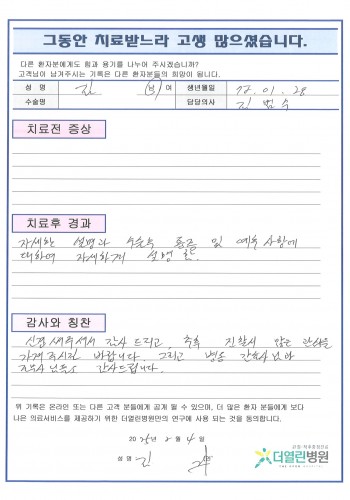 그동안 치료받느라 고생 많으셨습니다.
다른 환자분에게도 힘과 용기를 나누어 주시겠습니까?
고객님이 남겨주시는 기록은 다른 환자분들의 희망이 됩니다.
성 명 김 (남) 여 생년월일
수술명 담당의사 김범수
치료전 증상
치료후 경과
자세한 설명과 수술후 통증 및 예후 사항에
대하여 자세하게 설명 들음.
감사와 칭찬
신경써주셔서 감사 드리고, 추후 진찰시 많은 관심을
가져주시길 바랍니다. 그리고 병동 간호사님과
간호사님들도 감사드립니다.
위 기록은 온라인 또는 다른 고객 분들에게 공개 될 수 있으며, 더 많은 환자 분들에게 보다
나은 의료서비스를 제공하기 위한 더열린병원만의 연구에 사용 되는 것을 동의합니다.
2025년 2월 4일
성 명 김
더열린병원